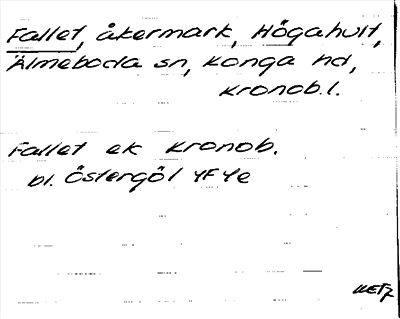 Fallet, åkermark, Högahult,
Älmeboda sn, Konga hd,
Kronob.l.
Fallet ek Kronob.
bl. Östergöl 4F4e